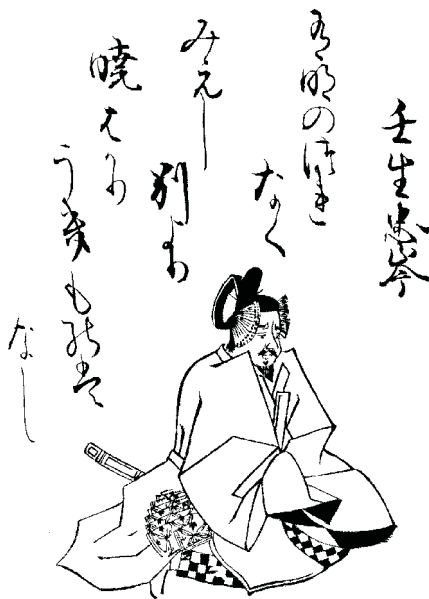 壬生忠岑
有明のつれ
なく
みえし
別より
暁はかり
うきものは
なし